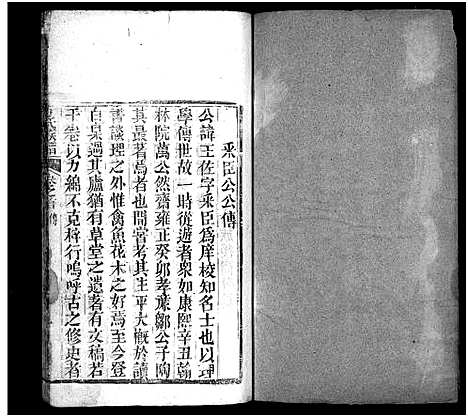 乘臣公公傳
公諱王佐字乘臣爲庠校知名士也以理
學傳世故一時從遊者衆如康熙辛丑翰
林院萬公然齋雍正癸卯孝廉鄒公子陶
其最著焉者也間嘗考其生平大槪於讀
書談理之外惟禽魚花木之好焉至今登
白臬過其廬猶有草堂之遺著有文稿若
干卷以力綿不克梓行嗚呼古之修史者